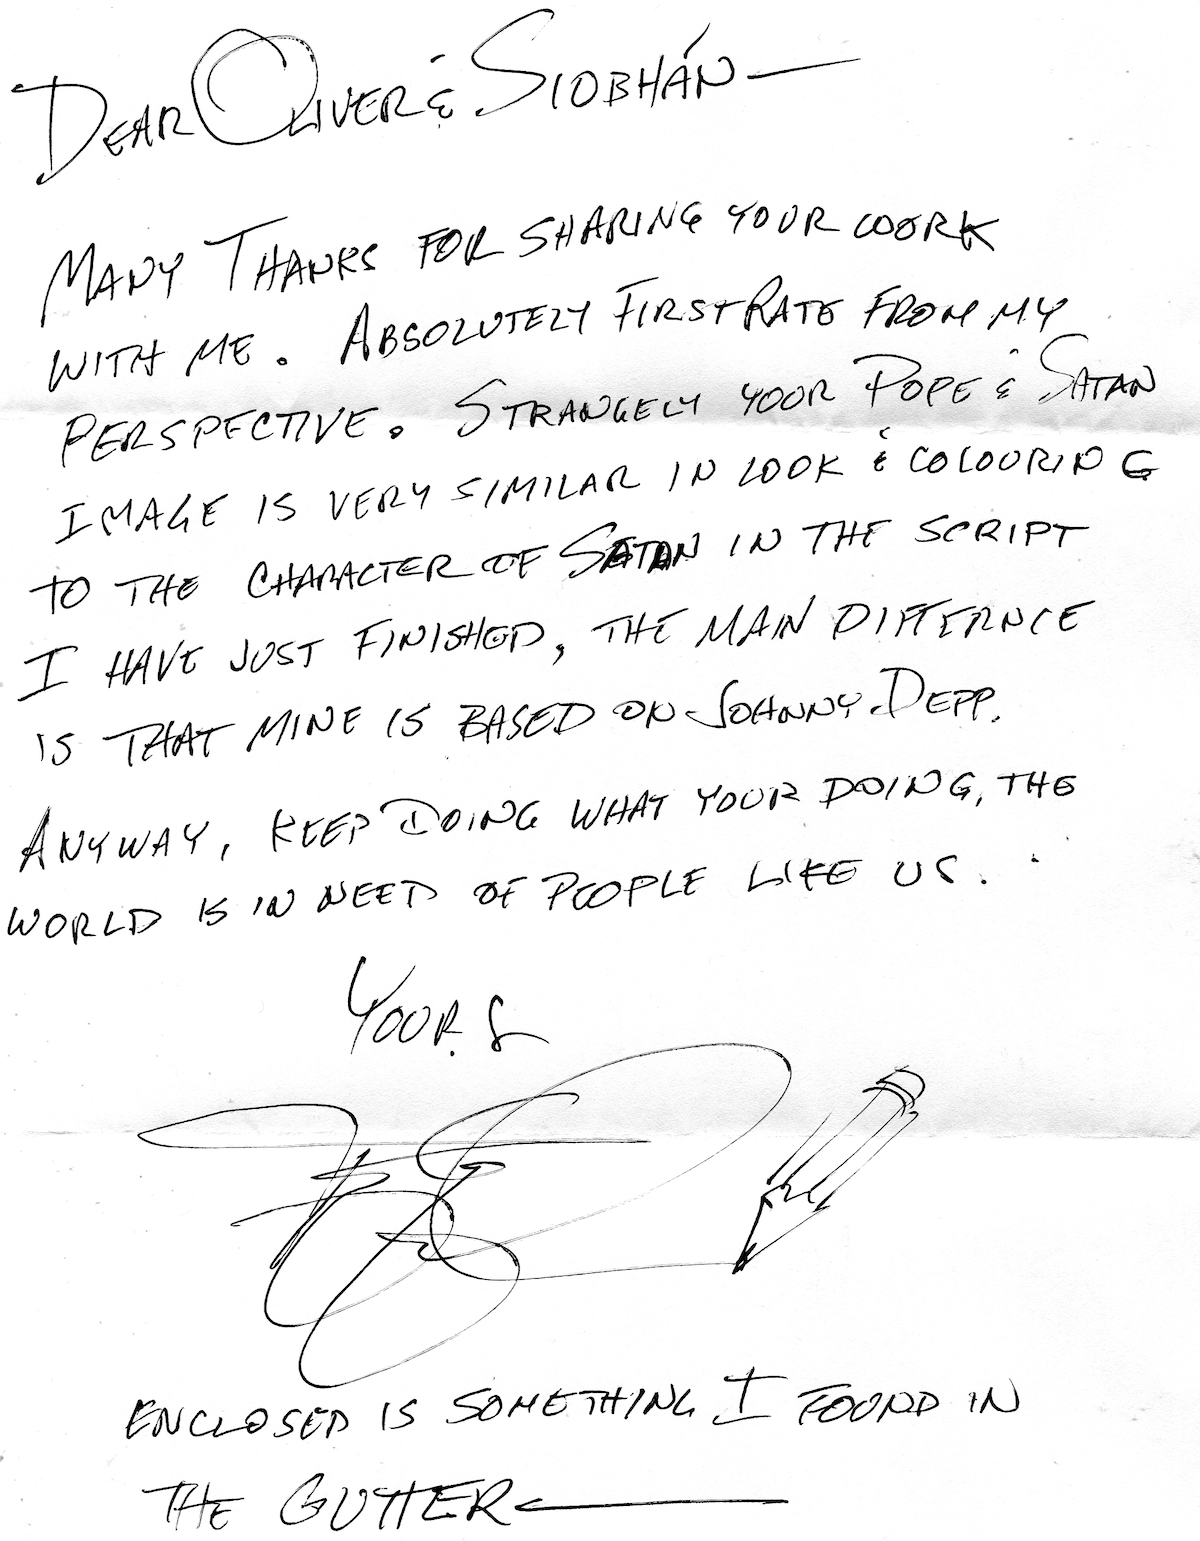 DEAR OLIVER & SIOBHÁN —
MANY THANKS FOR SHARING YOUR WORK
WITH ME. ABSOLUTELY FIRST RATE FROM MY
PERSPECTIVE. STRANGELY YOUR POPE & SATAN
IMAGE IS VERY SIMILAR IN LOOK & COLOURING
TO THE CHARACTER OF SATAN IN THE SCRIPT
I HAVE JUST FINISHED, THE MAIN DIFFERNCE
IS THAT MINE IS BASED ON JOHNNY DEPP.
ANYWAY, KEEP DOING WHAT YOUR DOING, THE
WORLD IS IN NEED OF PEOPLE LIKE US.
YOURS
ENCLOSED IS SOMETHING I FOUND IN
THE GUTTER —